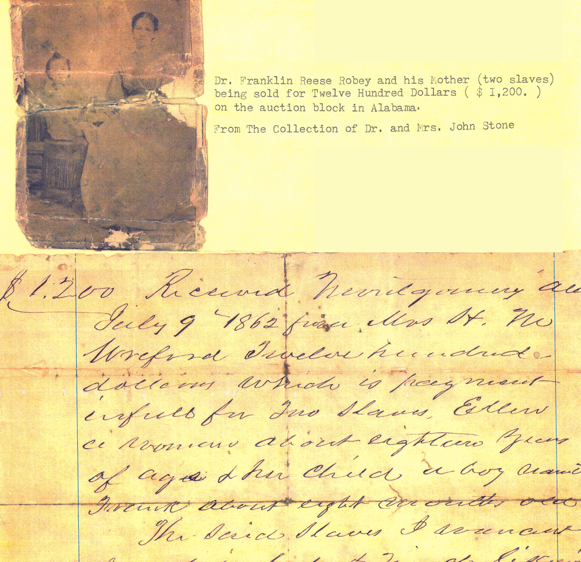 Dr. Franklin Reese Robey and his Mother (two slaves)
being sold for Twelve Hundred Dollars ( $ 1,200. )
on the auction block in Alabama.
From The Collection of Dr. and Mrs. John Stone
$ 1.200 Received Montgomery Ala
July 9th 1862 from Mrs H. M
Wreford Twelve hundred
dollars which is payment
in full for Two Slaves, Ellen
a woman about eighteen Years
of age & her child a boy named
Frank about eight months old
The Said Slaves I warrant